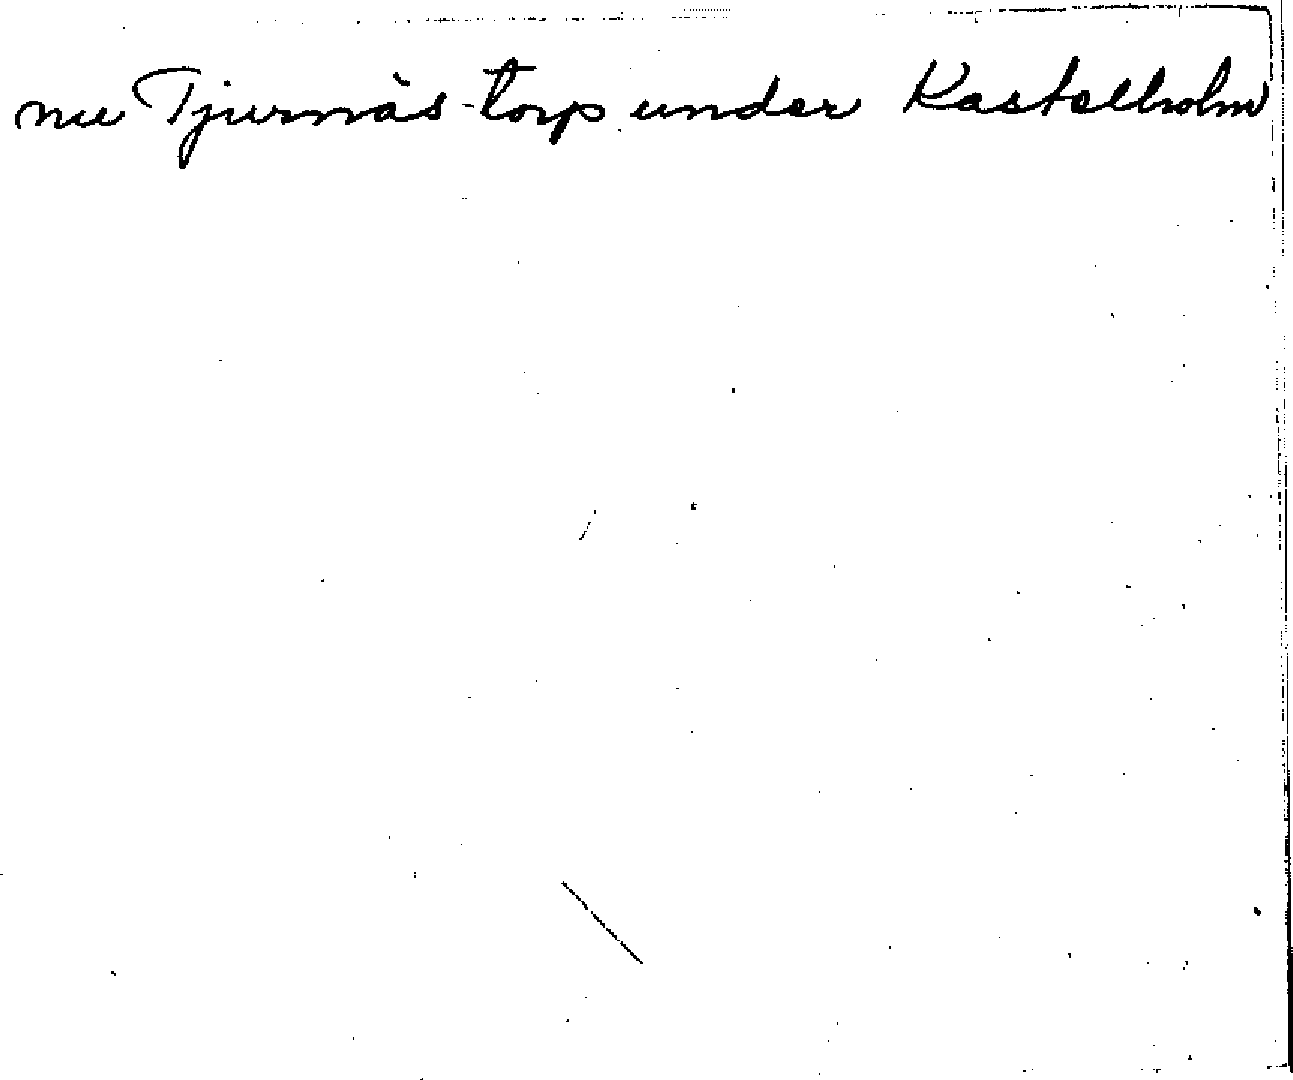 nu Tjurnäs torp under Kastelholm